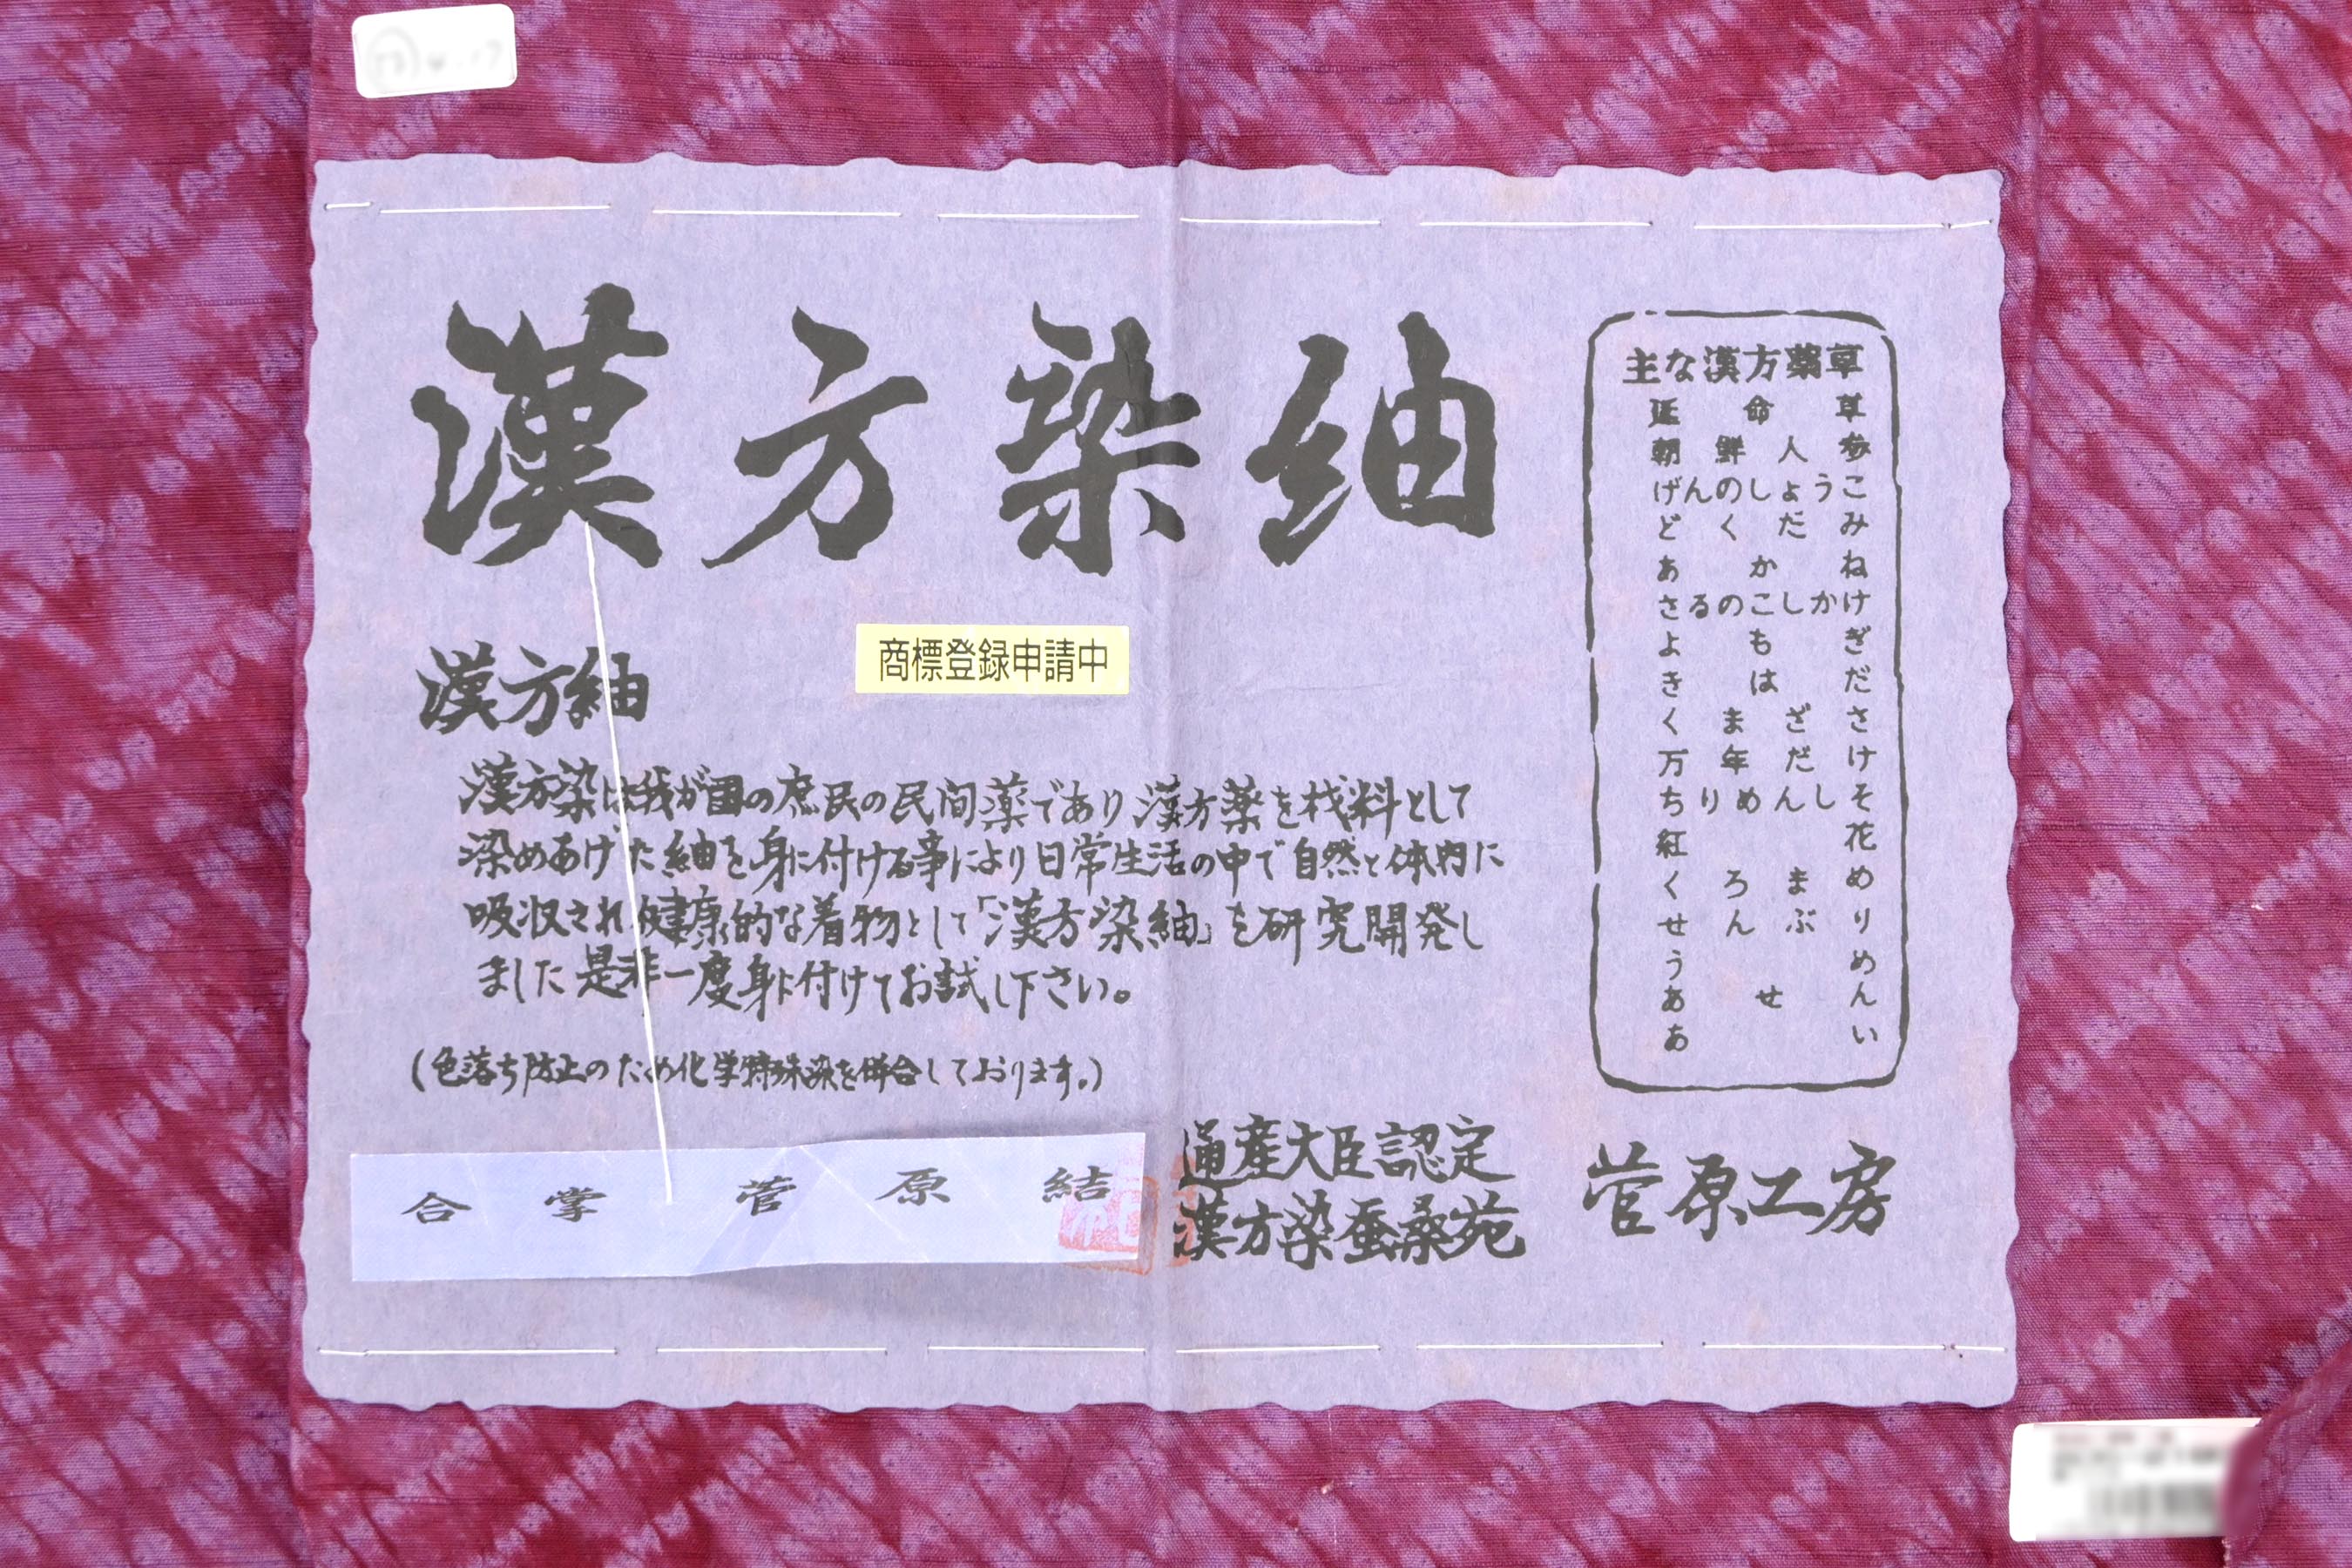 漢方染紬
商標登録申請中
漢方紬
漢方染は我が国の庶民の民間薬であり漢方薬を材料として
染めあげた紬を身に付ける事により日常生活の中で自然と体内に
吸収され健康的な着物として「漢方染紬」を研究開発し
ました是非一度身に付けてお試し下さい。
(色落ち防止のため化学特殊染を併合しております。)
合掌 菅原結
通産大臣認定
漢方染蚕桑苑
菅原工房
主な漢方薬草
延命草
朝鮮人参
げんのしょうこ
どくだみ
あかね
さるのこしかけ
よもぎ
きはだ
くまざさ
万年だけ
ちりめんしそ
紅花
くろまめ
せんぶり
うめ
あせん
あい